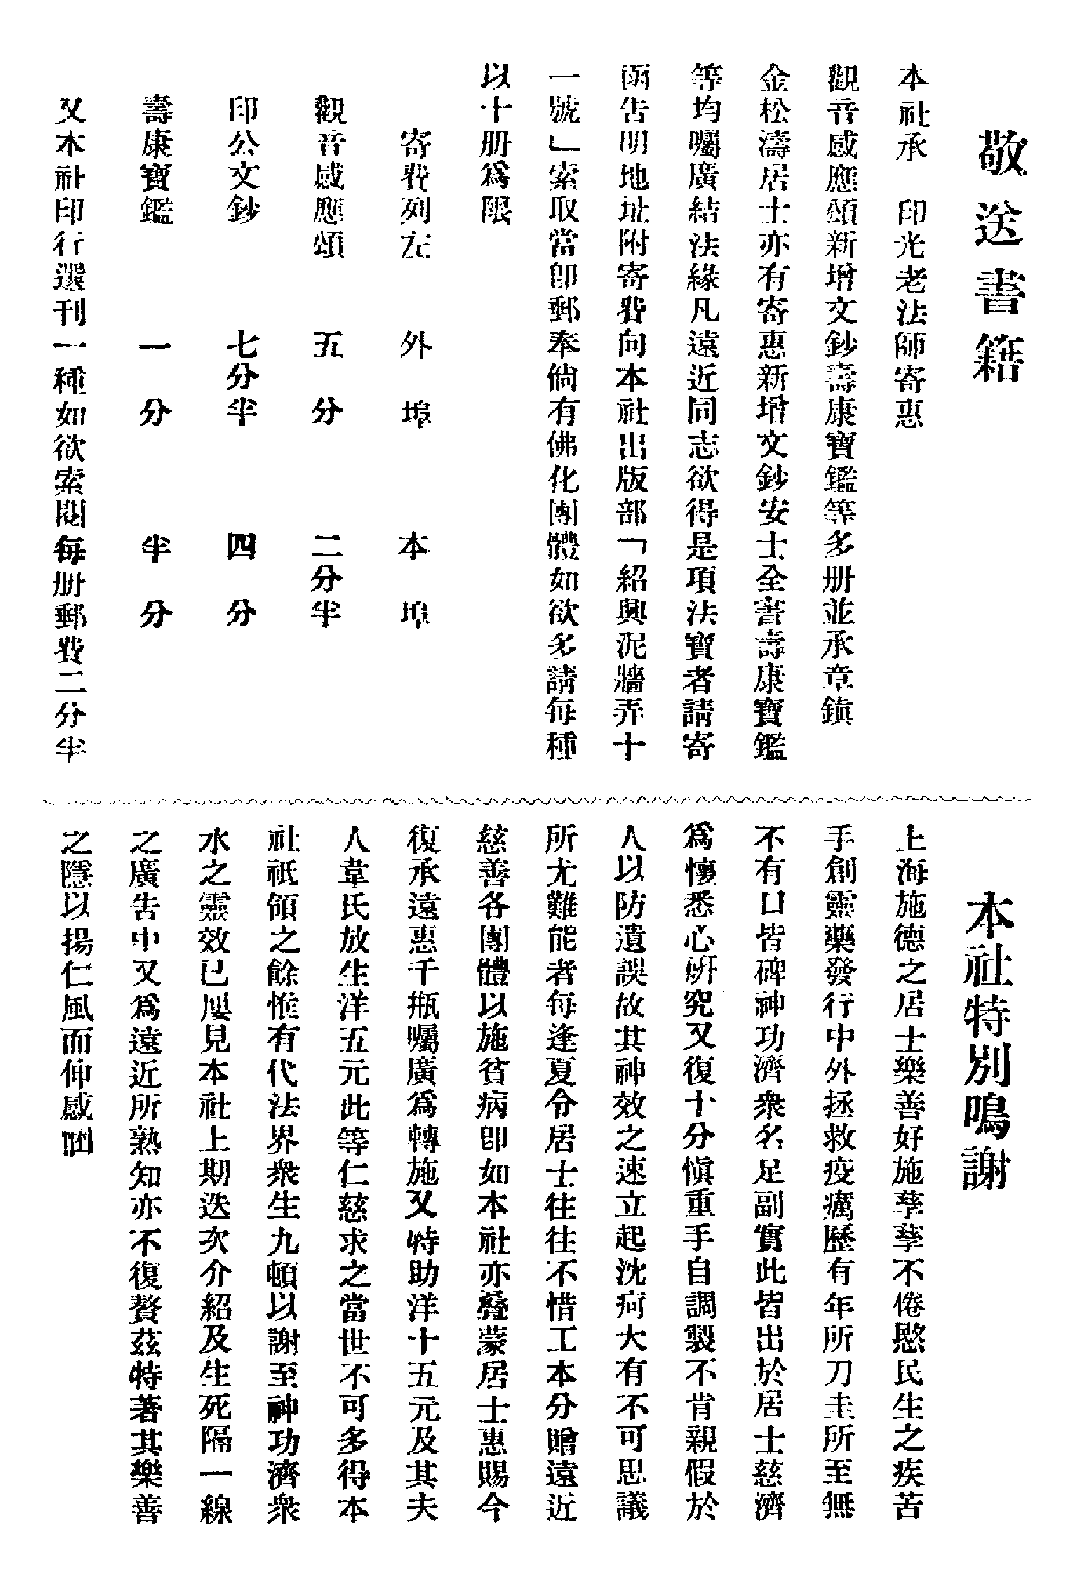 敬送書籍
本社承　印光老法師寄惠
觀音感應頌新增文鈔壽康寶鑑等多册並承章鎮
金松濤居士亦有寄惠新增文鈔安士全書壽康寶鑑
等均囑廣結法緣凡遠近同志欲得是項法寶者請寄
函告明地址附寄費向本社出版部「紹興泥牆弄十
一號」索取當即郵奉倘有佛化團體如欲多請每種
以十册爲限
寄費列左　外埠　本埠
觀音感應頌　五分　二分半
印公文鈔　七分半　四分
壽康寶鑑　一分　半分
又本社印行選刊一種如欲索閱每册郵費二分半
本社特別鳴謝
上海施德之居士樂善好施孳孳不倦愍民生之疾苦
手創靈藥發行中外拯救疫癘歷有年所刀圭所至無
不有口皆碑神功濟衆名足副實此皆出於居士慈濟
爲懷悉心硏究又復十分愼重手自調製不肯親假於
人以防遺誤故其神效之速立起沈疴大有不可思議
所尤難能者每逢夏令居士往往不惜工本分贈遠近
慈善各團體以施貧病即如本社亦叠蒙居士惠賜今
復承遠惠千瓶囑廣爲轉施又特助洋十五元及其夫
人韋氏放生洋五元此等仁慈求之當世不可多得本
社祇領之餘惟有代法界衆生九頓以謝至神功濟衆
水之靈效已屢見本社上期迭次介紹及生死隔一線
之廣告中又爲遠近所熟知亦不復贅茲特著其樂善
之隱以揚仁風而伸感悃